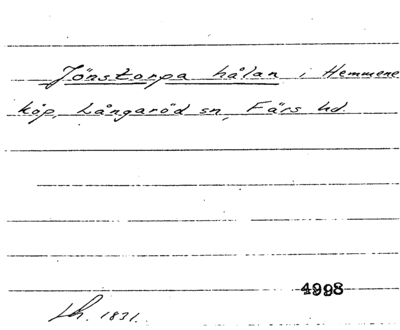 Jönstorpa hålan i Hemmene
köp, Långaröd sn, Färs hd.
4998
Lh. 1831.